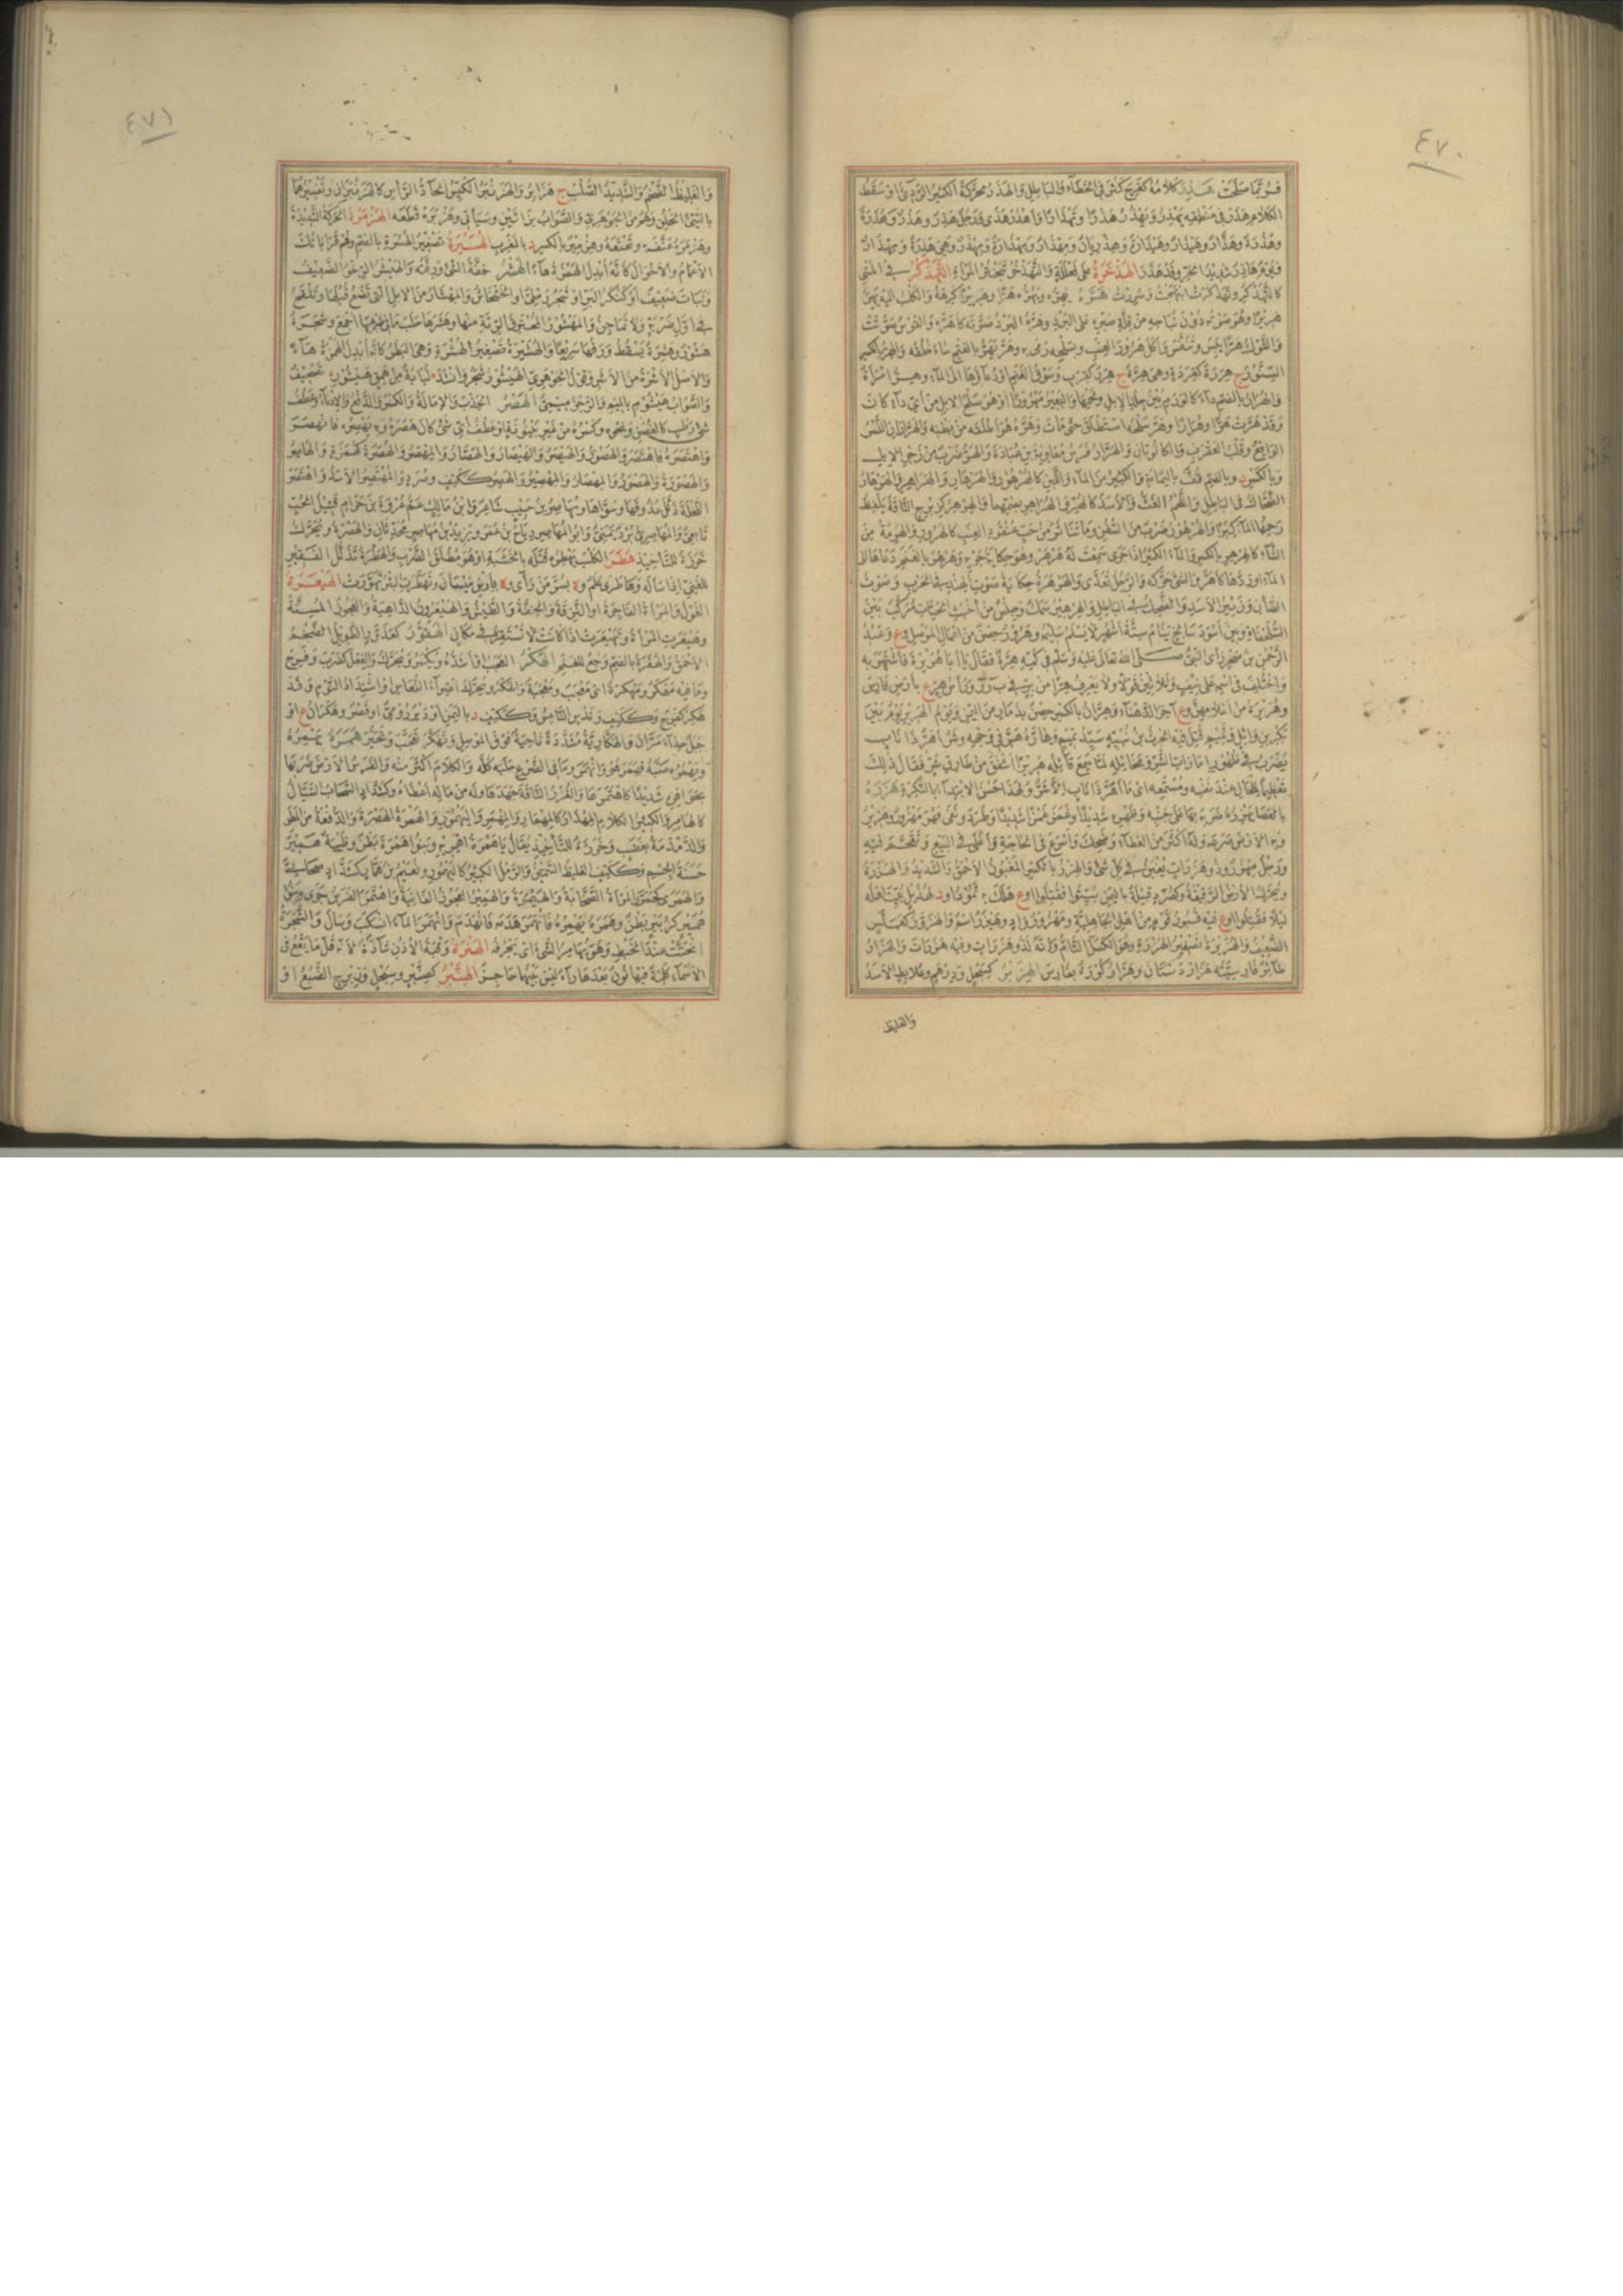 ٤٧٠
هذر كلامه كفرح كثر في الخطاء والباطل والهذر محركة الكثير الردي او سقط
الكلام هذر في منطقه يهذر ويهذر هذرا وتهذارا واهذر هذى ورجل هذر وهذر وهذرة
وهذرة وهذار وهيذار وهيذارة وهذريان ومهذار ومهذارة ومهذر وهي هذرة ومهذار
ويوم هاذر شديد الحر وقد هذر الهذخرة على فعللة والتهذخر تبختر المراة التهذكر في المشي
هريرا وهو صوته دون نباحه من قلة صبره على البرد وهره البرد صوته كاهره والقوس صوتت
والشوك هرا يبس وتنفش واكل هرور العنب وبسلحه رمى وهر يهر بالفتح ساء خلقه والهر بالكسر
السنور ج هررة كقردة وهي هرة ج هرر كقرب وسوق الغنم او دعاؤها الى الماء وهر امراة
والهرار بالضم داء كالورم بين جلد الابل ولحمها والبعير مهرور او هو سلح الابل من اي داء كان
وقد هرت هرا وهرارا وهر سلحه استطلق حتى مات وهره هو اطلقه من بطنه والهراران النسر
الواقع وقلب العقرب والكانونان والهرار فرس معاوية بن عبادة والهر ضرب من زجر الابل
وبالكسر د وبالضم قف باليمامة والكثير من الماء واللبن كالهرهور والهرهار والهراهر والهرهار
الضحاك في الباطل واللحم الغث والاسد كالهر والهراهر بضمهما والهرهر كزبرج الناقة يلفظ
رحمها الماء كبرا والهرهور ضرب من السفن وما تناثر من حب عنقود العنب كالهرور والهرهرة
الشاء كالهرهر بالكسر والماء الكثير اذا جرى سمعت له هرهر وهو حكاية جريه وهرهر بالغنم دعاها الى
الماء او اوردها كاهر والشئ حركه والرجل تعدى والهرهرة حكاية صوت الهند في الحرب وصوت
الضان وزئير الاسد والضحك في الباطل والهرهير سمك وجنس من اخبث الحيات مركب بين
السلحفاة وبين اسود سالخ ينام ستة اشهر لا يسلم سليمه وهرور حصن من اعمال الموصل وع وعبد
الرحمن بن صخر راى النبي صلى الله تعالى عليه وسلم في كمه هرة فقال يا ابا هريرة فاشتهر به
واختلف في اسمه على نيف وثلاثين قولا ولا يعرف هرا من بر في ب ر ر وراس هر ع بارض فارس
وهريرة من اعلامهن وع اخر الدهناء وهران بالكسر حصن بذمار من اليمن ويوم الهرير يوم بين
بكر بن وائل وتميم قتل فيه الحرث بن نبيه سيد تميم وهاره هر في وجهه وشر اهر ذا ناب
يضرب في ظهور امارات الشر ومخايله لما سمع قائله هريرا اشفق من طارق شر فقال ذلك
تعظيما للحال عند نفسه ومستمعه اي ما اهر ذا ناب الا شر ولهذا حسن الابتداء بالنكرة هزره
بالعصا يهزره ضربه بها على جنبه وظهره شديدا وغمز غمزا شديدا وطرد ونفى فهو مهزور وهزير
وبه الارض صرعه وله اكثر من العطاء وضحك واسرع في الحاجة واغلى في البيع وتقحم فيه
ورجل مهزر وذو هزرات يغبن في كل شئ والهزر بالكسر المغبون الاحمق والشديد والهزرة
ويحرك الارض الرقيقة وكصرد قبيلة باليمن بيتوا فقتلوا او ع هلك به ثمود او د لهذيل بيت اهله
ليلا فقتلوا او ع فيه قبور قوم من اهل الجاهلية ومهزور واد وهيزر اسم والهزور كعملس
الضعيف والهزيرة تصغير الهزرة وهو الكسل التام وانه لذو هزرات وفيه هزرات والهزار
طائر فارسيته هزار دستان وهزار كورة بفارس الهزبر كسبحل ودرهم وعلابط الاسد
والغليظ
٤٧١
والغليظ الضخم والشديد الصلب ج هزابر والهزنبر الكيس الحاد الراس كالهزنبران وتفسيرهما
بالسيئ الخلق وهم من الجوهري والصواب بزائين وسياتي وهزبره قطعه الهزمرة الحركة الشديدة
وهزمره عنف به وتعتعه وهزمير بالكسر د بالمغرب الهسيرة تصغير الهسرة بالضم وهم قراباتك
الاعمام والاخوال كانه ابدل الهمزة هاء الهشر خفة الشئ ورقته والهيشر الرخو الضعيف
ونبات ضعيف او كنكر البر او شجر رملي او الخشخاش والمهشار من الابل التي تضع قبلها وتلقح
في اول ضربة ولا تماجن والمهشور المحترق الرئة منها وهشرها حلب ما في ضرعها اجمع وشجرة
هشور وهشرة يسقط ورقها سريعا والهشيرة تصغير الهشرة وهي البطر كانه ابدل الهمزة هاء
والاصل الاشرة من الاشر وقول الجوهري الهيشور شجر وانشد لباية من همق هيشور تصحيف
والصواب هيشوم بالميم والرجز ميمي الهصر الجذب والامالة والكسر والدفع والادناء وعطف
شئ رطب كالغصن ونحوه وكسره من غير بينونة او عطف اي شئ كان هصره وبه يهصره فانهصر
واهتصره فاهتصر والهصور والهيصر والهيصار والهصار والمهصر والهصرة كهمزة والهاصر
والهصورة والهصور والمهصار والمهصير والهصر ككتف وصرد والمهتصر الاسد واهتصر
النخلة ذلل عذوقها وسواها ومهاصر بن حبيب شاعر وابن مالك عم عروة بن حزام قتيل الحب
تابعي والمهاصري برد يمني وابو المهاصر رياح بن عمرو ويزيد بن مهاصر محدثان والهصرة ويحرك
خرزة للتاخيذ هطر الكلب يهطره قتله بالخشبة او هو مطلق الضرب والهطرة تذلل الفقير
للغني اذا ساله وهاطرى بسر من راى وة بارض ميسان وتهطرت البئر تهورت الهيعرة
الغول والمراة الفاجرة او النزقة والخفة والطيش والهيعرون الداهية والعجوز المسنة
وهيعرت المراة وتهيعرت اذا كانت لا تستقر في مكان الهقور كعذور الطويل الضخم
الاحمق والهقرة بالضم وجع للغنم الهكر العجب او اشده ويكسر ويحرك والفعل كضرب وفرح
وما فيه مهكر ومهكرة اي معجب ومعجبة والهكر ويحرك اعتراء النعاس او اشتداد النوم وقد
هكر كفرح وككتف وندس الناعس وككتف د باليمن او دير رومي او قصر وهكران ع او
جبل حذاء مران والهكارية مشددة ناحية فوق الموصل وتهكر تعجب وتحير همره يهمره
ويهمره صبه فهمر هو وانهمر وما في الضرع حلبه كله والكلام اكثر منه والفرس الارض ضربها
بحوافره شديدا كاهتمرها والغزر الناقة جهدها وله من ماله اعطاه وكشداد السحاب السيال
كالهامر والكثير الكلام المهذار كالمهمار والمهمر واليهمور والهمرة الهصرة والدفعة من المطر
والدمدمة بغضب وخرزة للتاخيذ يقال يا همرة اهمريه وبنو همرة بطن وظبية همير
حسنة الجسم وككتف الغليظ السمين والرمل الكثير كاليهمور ونعيم بن همار كشداد صحابي
والهمرى كجمزى المراة الصخابة والهيمرة والهمير العجوز الفانية واهتمر الفرس جرى وبنو
همير كزبير بطن وهمره يهمره فانهمر هدمه فانهدم وانهمر الماء انسكب وسال والشجرة
انحتت عند الخبط وهو يهامر الشئ اي يجرفه الهنرة وقبة الاذن شاذة لانه قل ما يقع في
الاسماء كلمة فيها نون بعدها راء ليس بينهما حاجز الهنبر كصنبر وسبحل وزبرج الضبع او